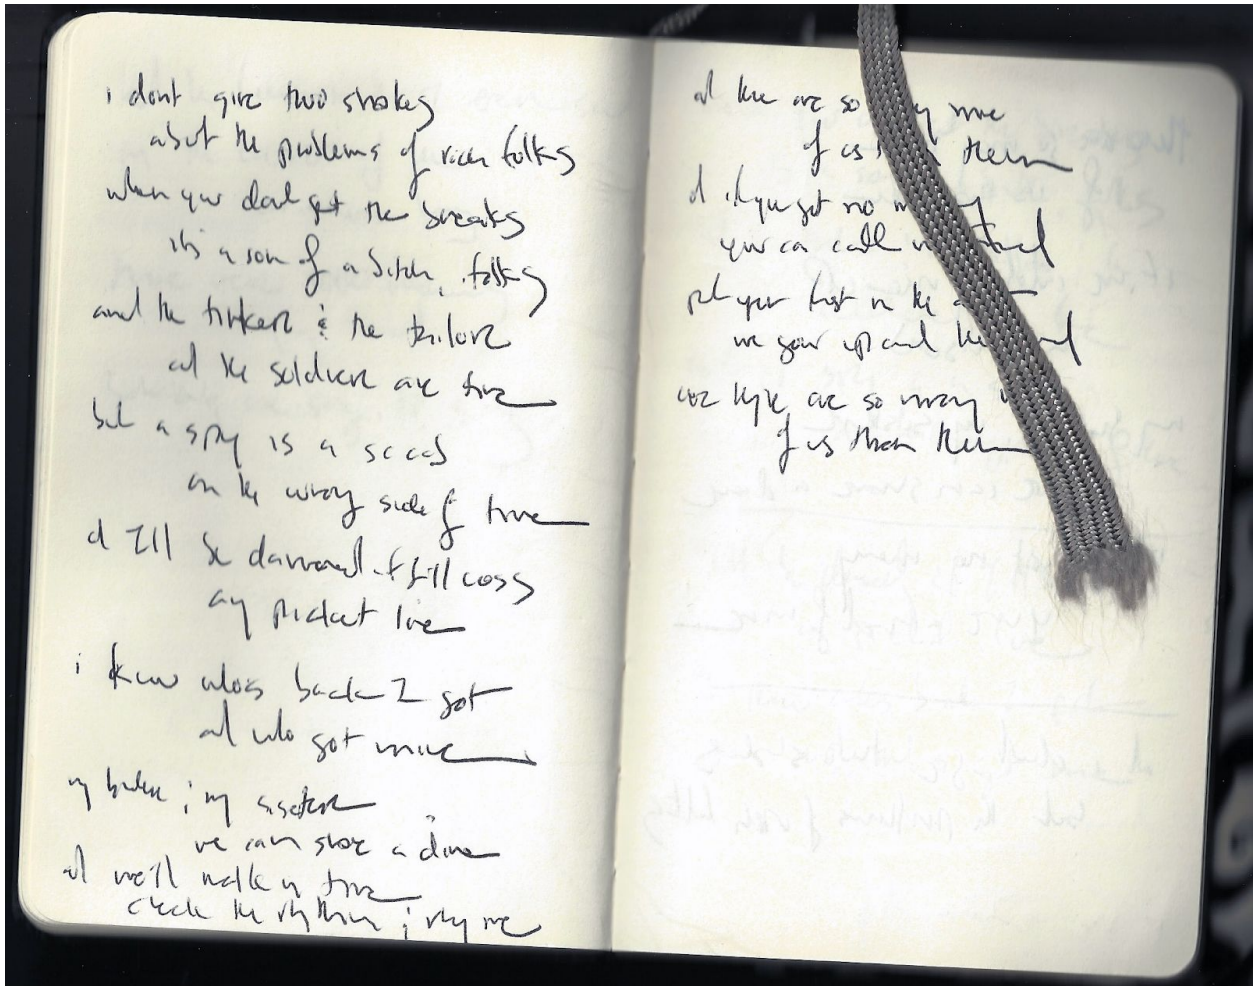 i dont give two shakes
about the problems of rich folks
when you dont get the breaks
it's a son of a bitch, folks
and the tinkers & the tailors
and the soldiers are fine
but a spy is a scab
on the wrong side of
d I'll be damned if I'll cross
any picket line
i know whos back I got
and who got mine
my brother & my sister
we can share a dime
and we'll walk in time
check the rhythm & rhyme
and there are so more
of us them
if you got no
you can call
put your fist in the
up and the
are so many
of us than them